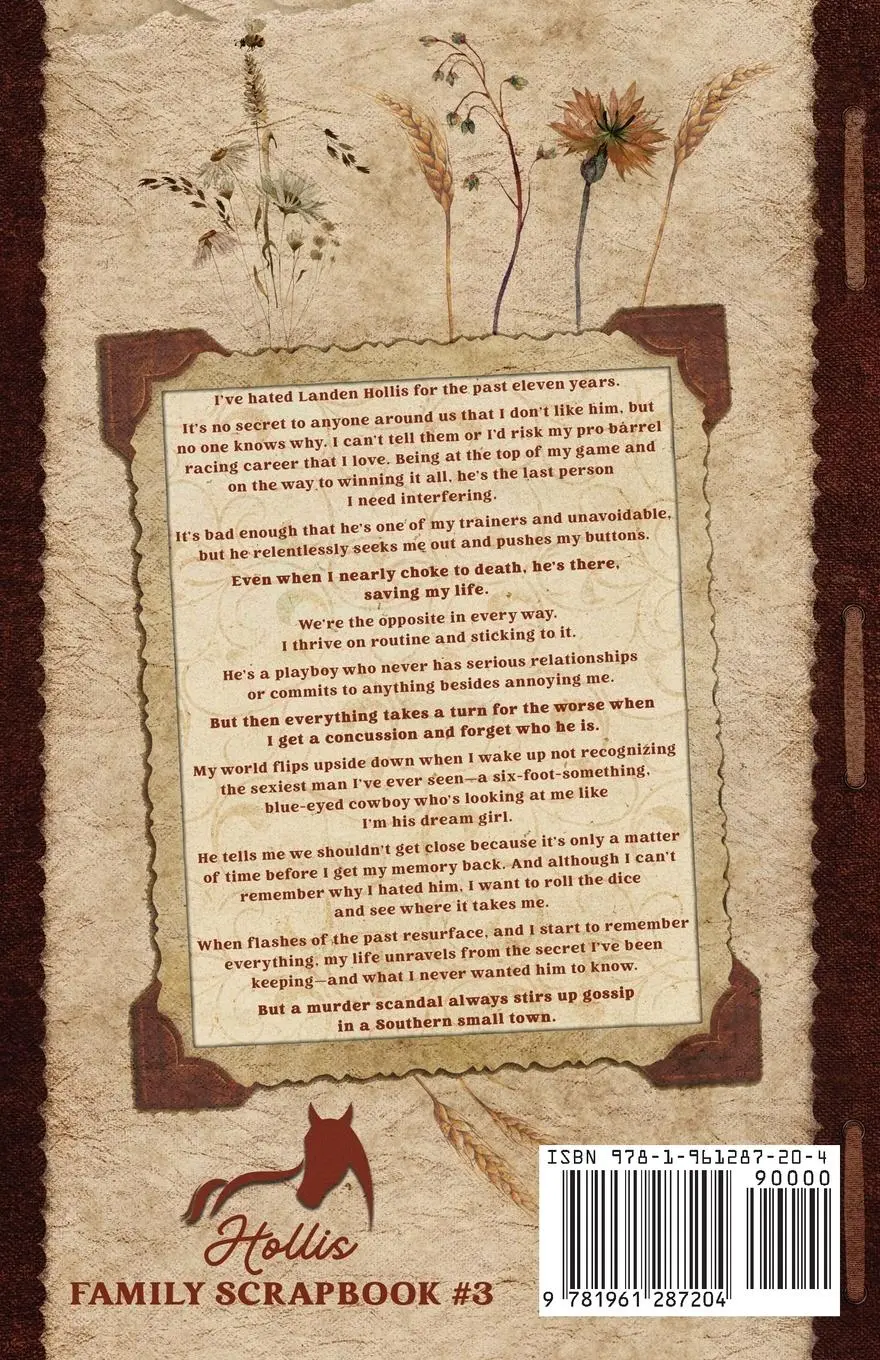 I've hated Landen Hollis for the past eleven years.
It's no secret to anyone around us that I don't like him, but
no one knows why. I can't tell them or I'd risk my pro barrel
racing career that I love. Being at the top of my game and
on the way to winning it all, he's the last person
I need interfering.
It's bad enough that he's one of my trainers and unavoidable,
but he relentlessly seeks me out and pushes my buttons.
Even when I nearly choke to death, he's there,
saving my life.
We're the opposite in every way.
I thrive on routine and sticking to it.
He's a playboy who never has serious relationships
or commits to anything besides annoying me.
But then everything takes a turn for the worse when
I get a concussion and forget who he is.
My world flips upside down when I wake up not recognizing
the sexiest man I've ever seen—a six-foot-something,
blue-eyed cowboy who's looking at me like
I'm his dream girl.
He tells me we shouldn't get close because it's only a matter
of time before I get my memory back. And although I can't
remember why I hated him, I want to roll the dice
and see where it takes me.
When flashes of the past resurface, and I start to remember
everything, my life unravels from the secret I've been
keeping—and what I never wanted him to know.
But a murder scandal always stirs up gossip
in a Southern small town.
Hollis
FAMILY SCRAPBOOK #3
ISBN 978-1-961287-20-4
90000
9 781961 287204